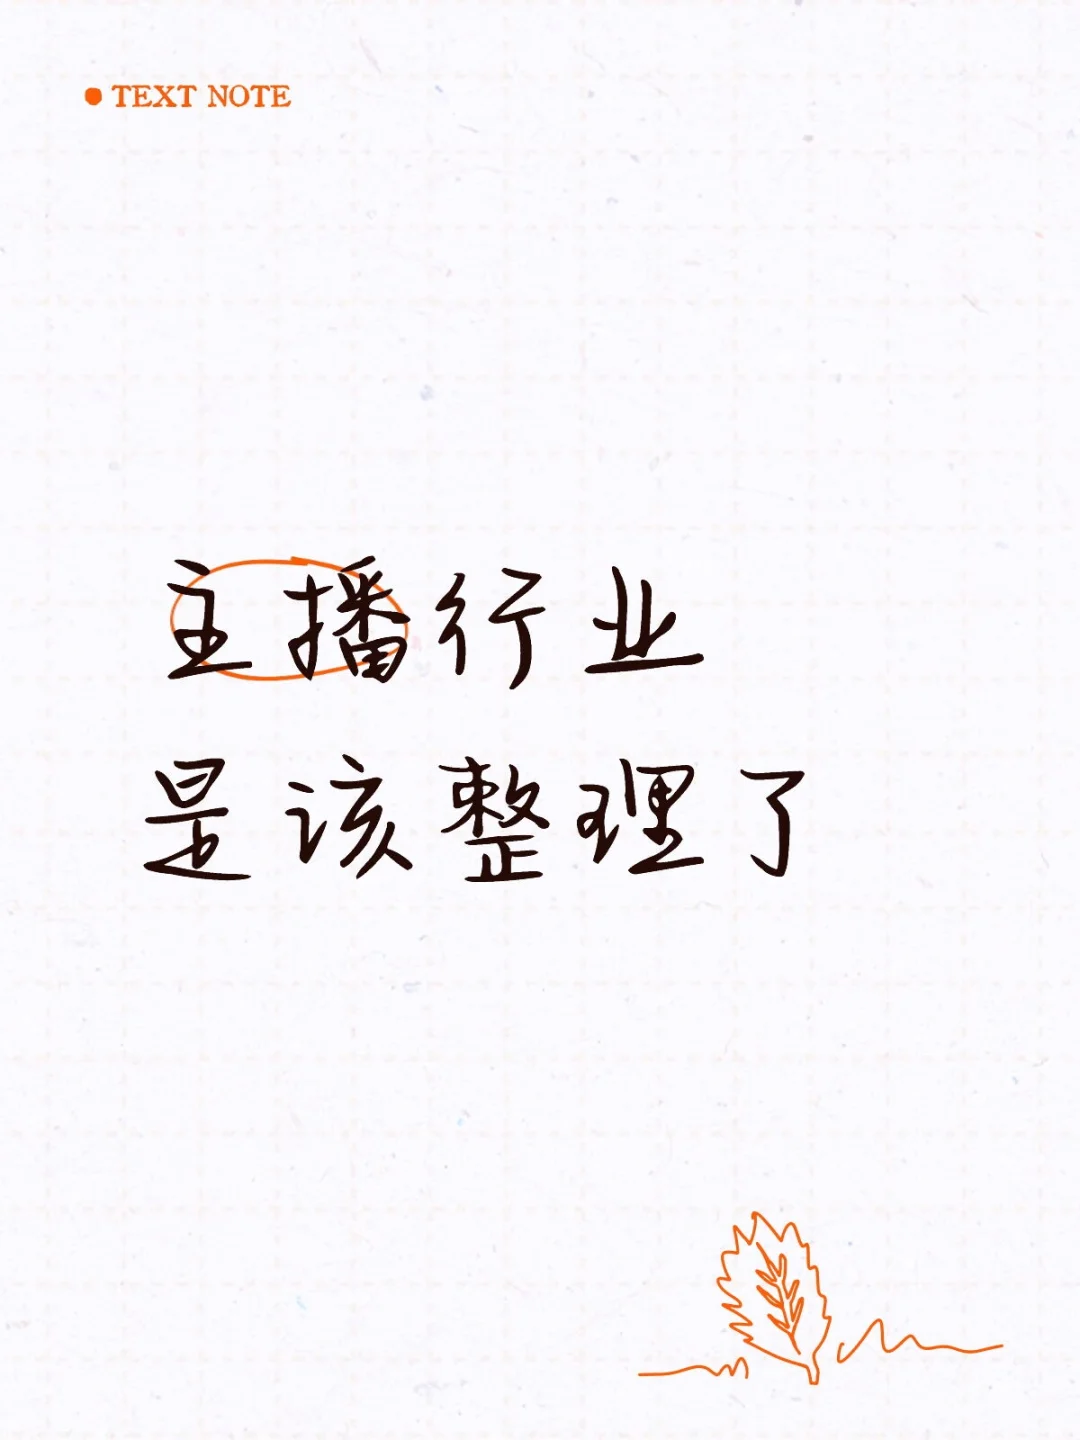 TEXT NOTE
主播行业
是该整理了